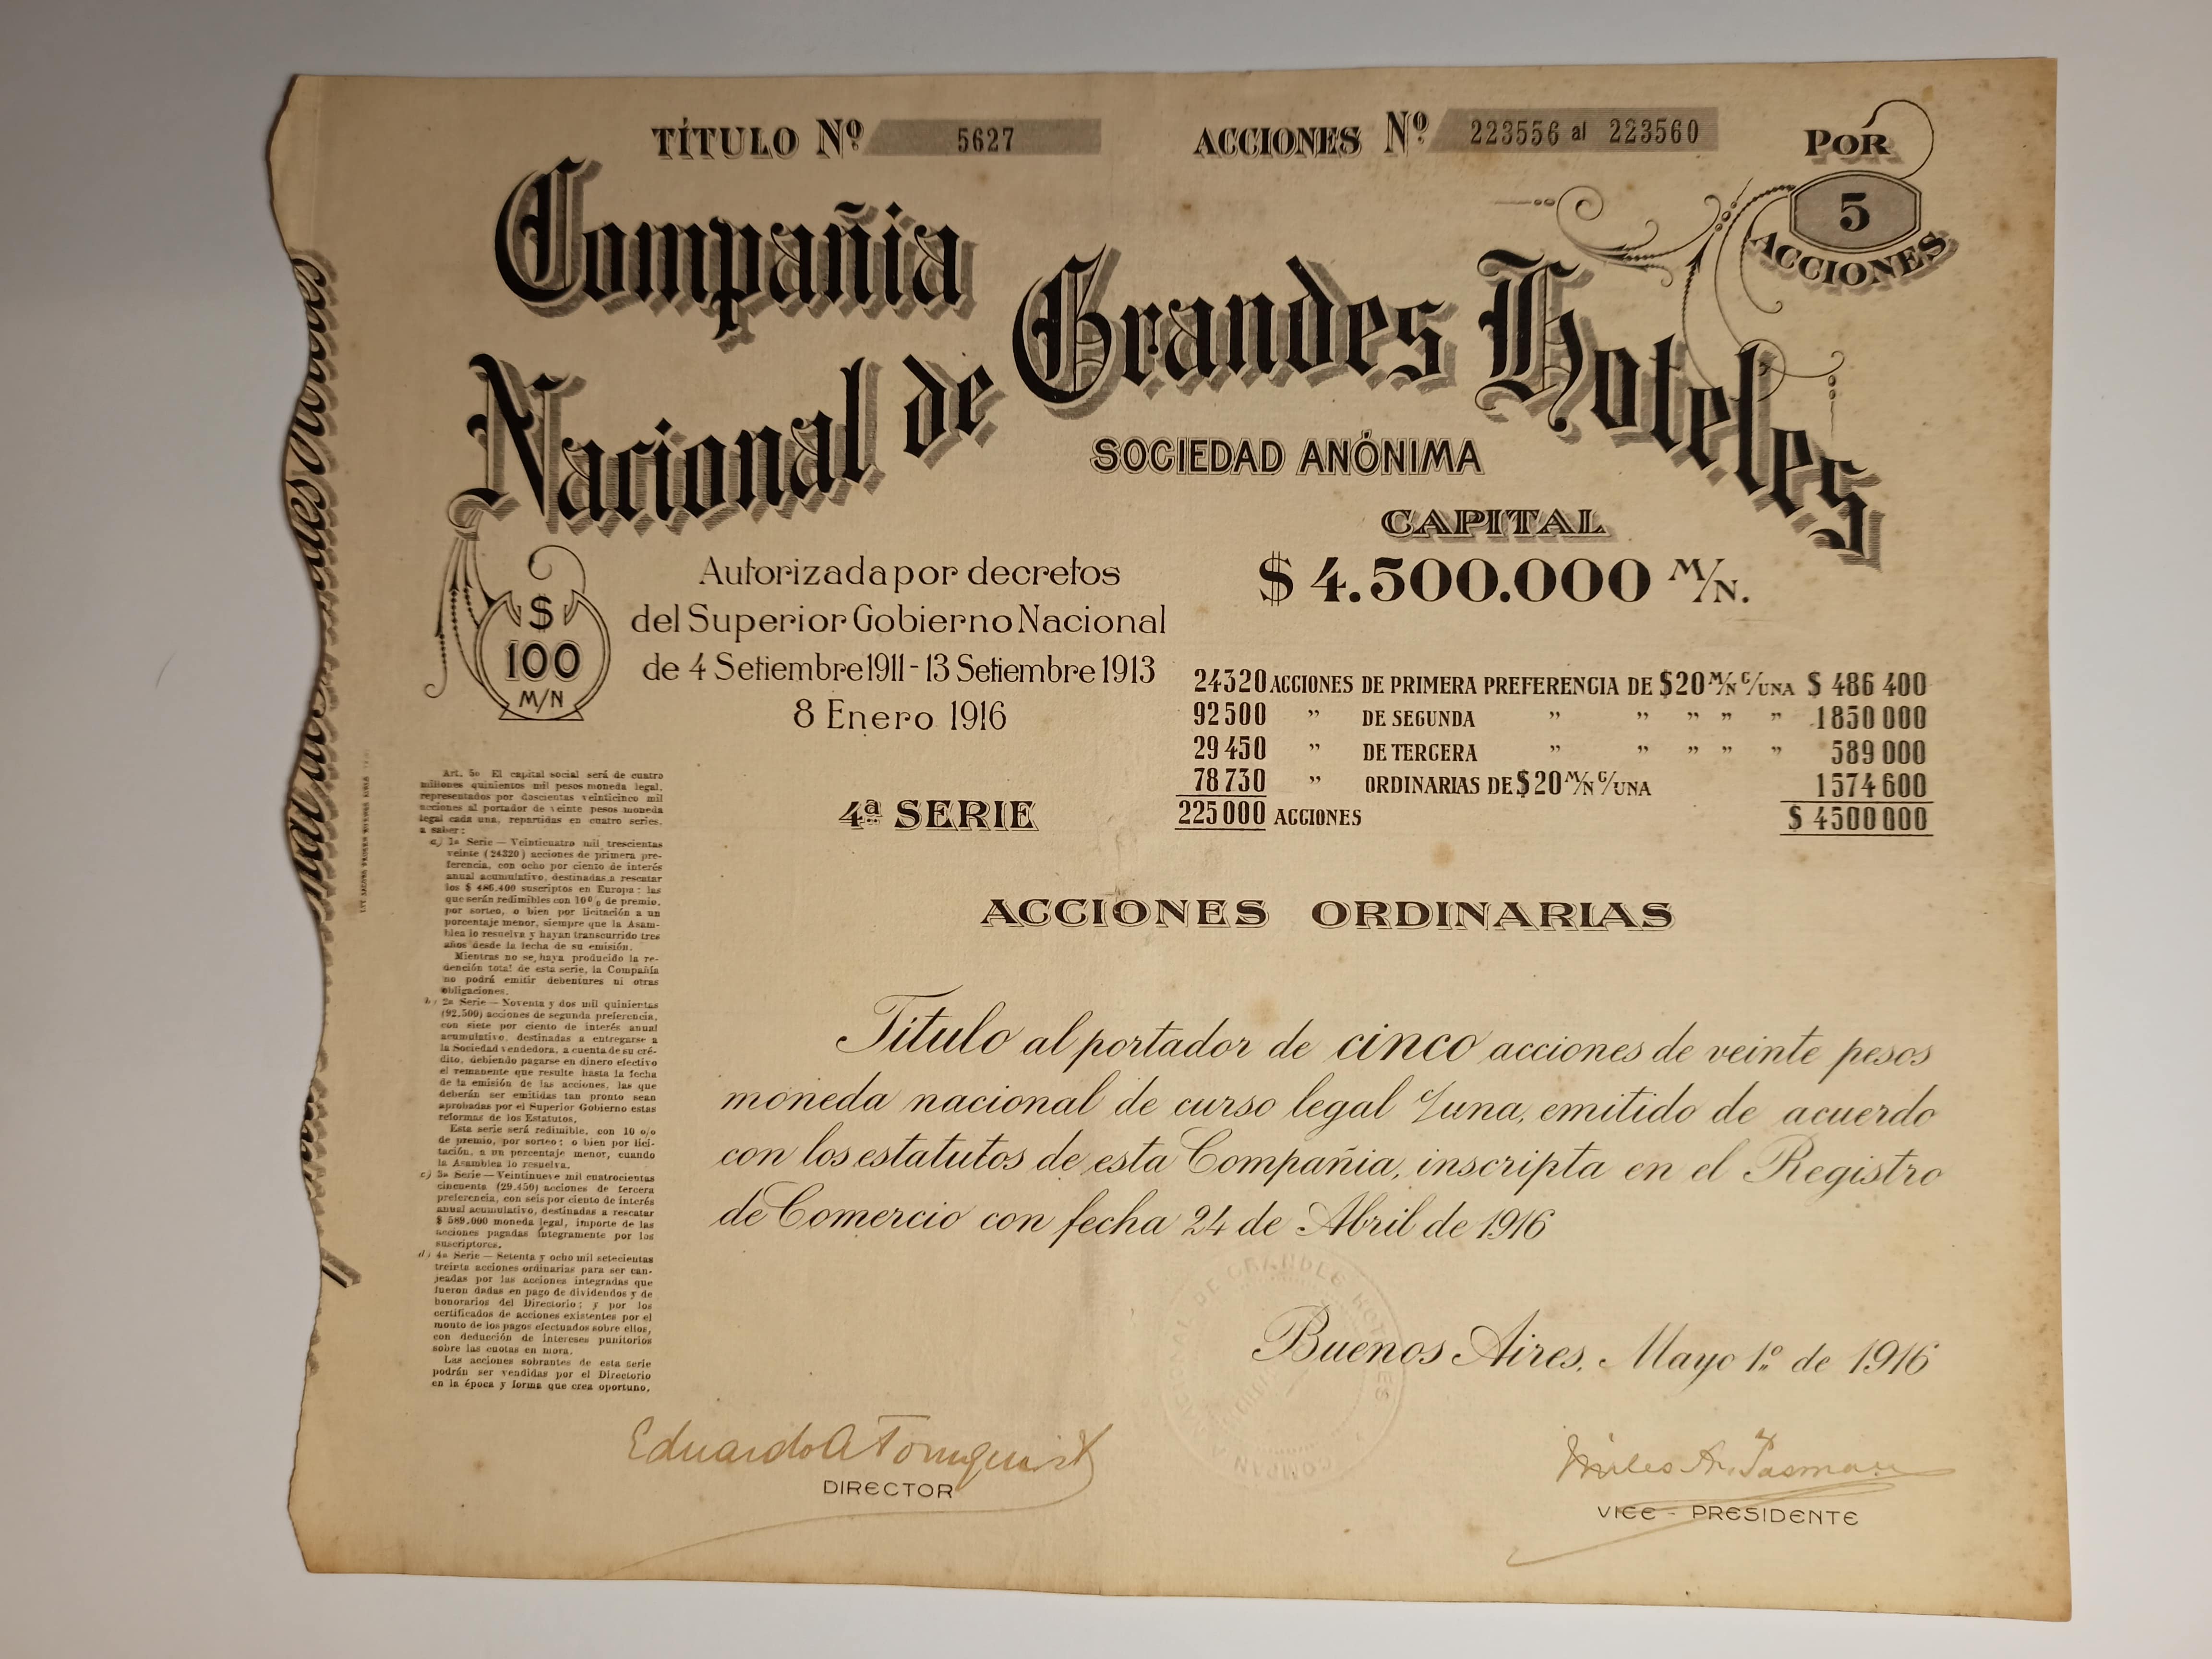 TÍTULO Nº 5627
ACCIONES Nº 223556 al 223560
POR
5
ACCIONES
Compañia
Nacional de Grandes Hoteles
SOCIEDAD ANÓNIMA
CAPITAL
$ 4.500.000 M/N.
$
100
M/N
Autorizada por decretos
del Superior Gobierno Nacional
de 4 Setiembre 1911 - 13 Setiembre 1913
8 Enero 1916
4ª SERIE
24320 ACCIONES DE PRIMERA PREFERENCIA DE $20 M/N C/UNA $ 486 400
92500 " DE SEGUNDA " " " " " 1850 000
29450 " DE TERCERA " " " " " 589 000
78730 " ORDINARIAS DE $20 M/N C/UNA 1574 600
225000 ACCIONES $ 4500 000
ACCIONES ORDINARIAS
Art. 5º El capital social será de cuatro
millones quinientos mil pesos moneda legal,
representados por doscientas veinticinco mil
acciones al portador de veinte pesos moneda
legal cada una, repartidas en cuatro series,
a saber:
a) 1a Serie — Veinticuatro mil trescientas
veinte (24320) acciones de primera pre-
ferencia, con ocho por ciento de interés
anual acumulativo, destinadas a rescatar
los $ 486.400 suscriptos en Europa; las
que serán redimibles con 10% de premio,
por sorteo, o bien por licitación a un
porcentaje menor, siempre que la Asam-
blea lo resuelva y hayan transcurrido tres
años desde la fecha de su emisión.
Mientras no se haya producido la re-
dención total de esta serie, la Compañía
no podrá emitir debentures ni otras
obligaciones.
b) 2a Serie — Noventa y dos mil quinientas
(92.500) acciones de segunda preferencia,
con siete por ciento de interés anual
acumulativo, destinadas a entregarse a
la Sociedad vendedora, a cuenta de su cré-
dito, debiendo pagarse en dinero efectivo
el remanente que resulte hasta la fecha
de la emisión de las acciones, las que
deberán ser emitidas tan pronto sean
aprobadas por el Superior Gobierno estas
reformas de los Estatutos.
Esta serie será redimible, con 10 o/o
de premio, por sorteo; o bien por lici-
tación, a un porcentaje menor, cuando
la Asamblea lo resuelva.
c) 3a Serie — Veintinueve mil cuatrocientas
cincuenta (29.450) acciones de tercera
preferencia, con seis por ciento de interés
anual acumulativo, destinadas a rescatar
$ 589.000 moneda legal, importe de las
acciones pagadas íntegramente por los
suscriptores.
d) 4a Serie — Setenta y ocho mil setecientas
treinta acciones ordinarias para ser can-
jeadas por las acciones integradas que
fueron dadas en pago de dividendos y de
honorarios del Directorio; y por los
certificados de acciones existentes por el
monto de los pagos efectuados sobre ellos,
con deducción de intereses punitorios
sobre las cuotas en mora.
Las acciones sobrantes de esta serie
podrán ser vendidas por el Directorio
en la época y forma que crea oportuno.
Título al portador de cinco acciones de veinte pesos
moneda nacional de curso legal c/una, emitido de acuerdo
con los estatutos de esta Compañia, inscripta en el Registro
de Comercio con fecha 24 de Abril de 1916
Buenos Aires, Mayo 1º de 1916
DE GRANDES HOTELES
Eduardo A Tornquist
DIRECTOR
Miles A. Pasman
VICE - PRESIDENTE